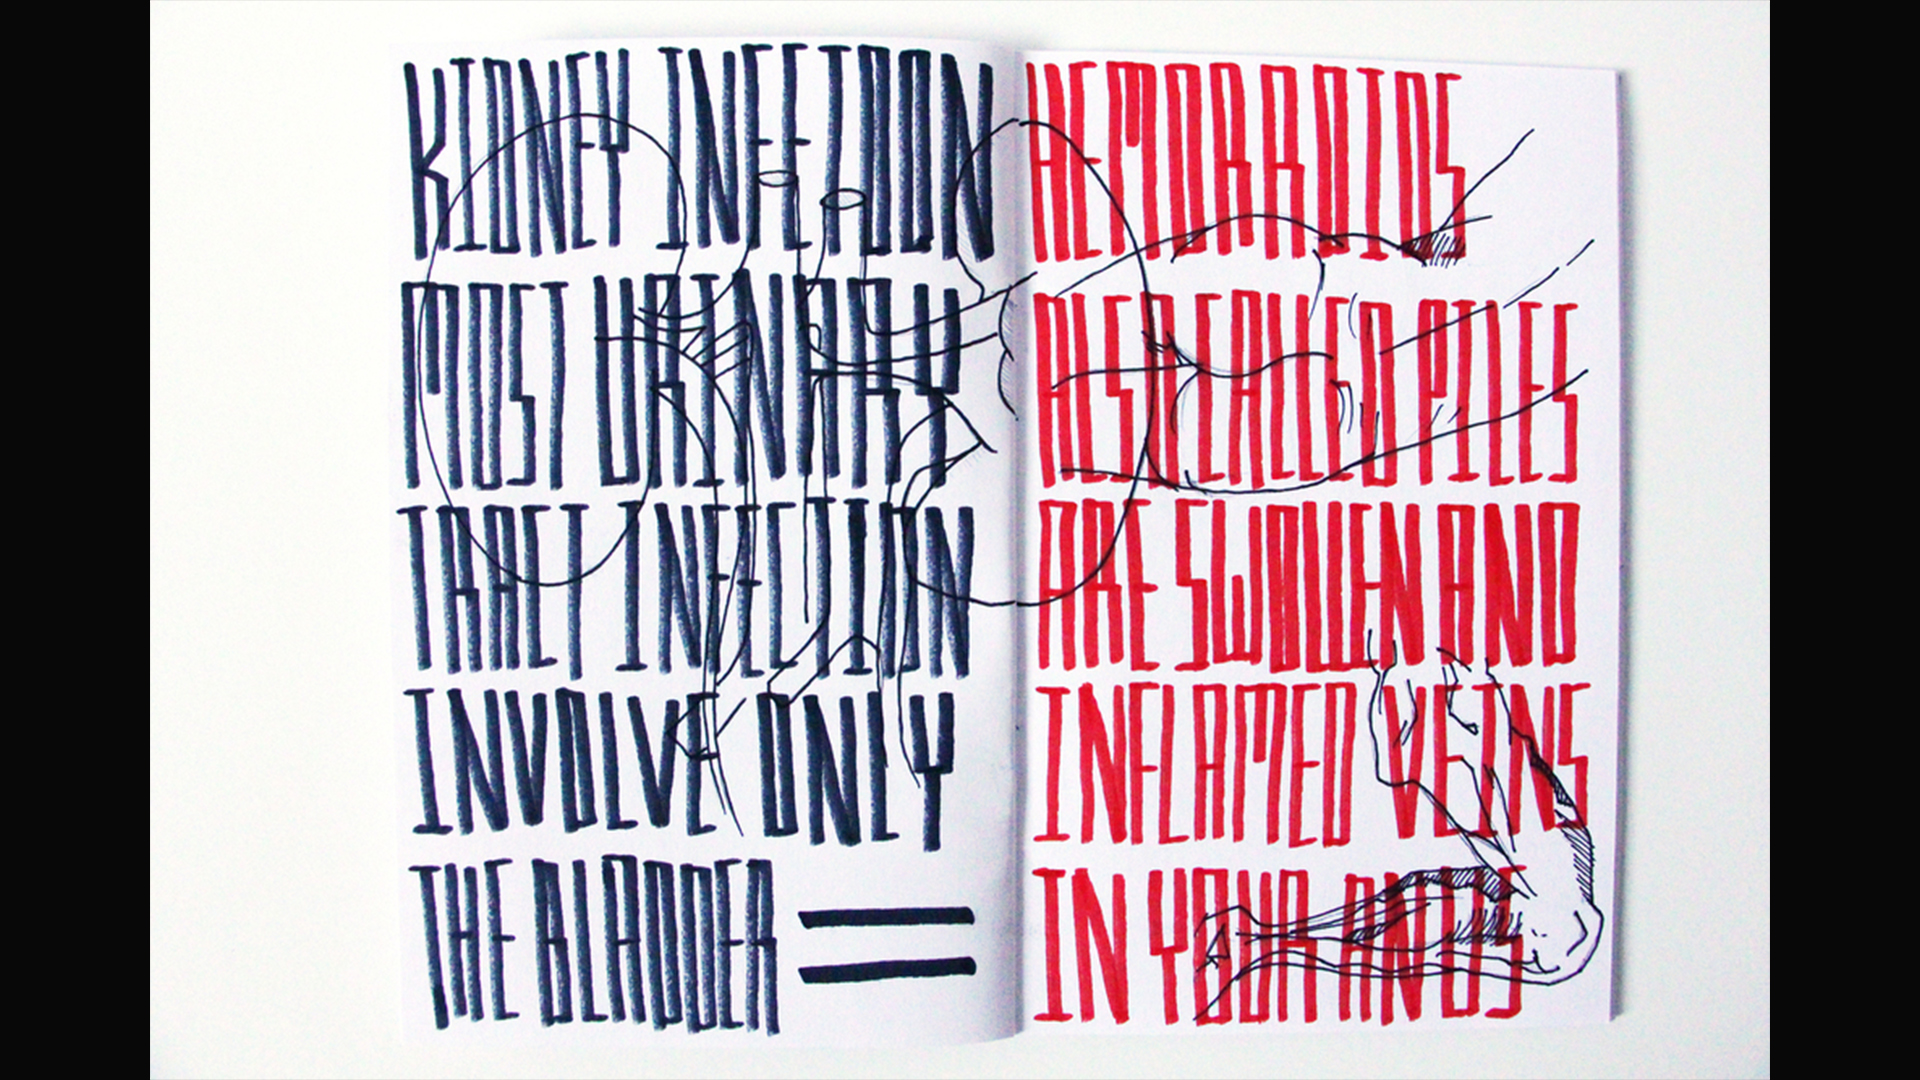 KIDNEY INFETION
MOST URINARY
TRACT INFECTION
INVOLVE ONLY
THE BLADDER =
HEMORROIDS
ALSO CALLED PILES
ARE SWOLLEN AND
INFLAMED VEINS
IN YOUR ANUS